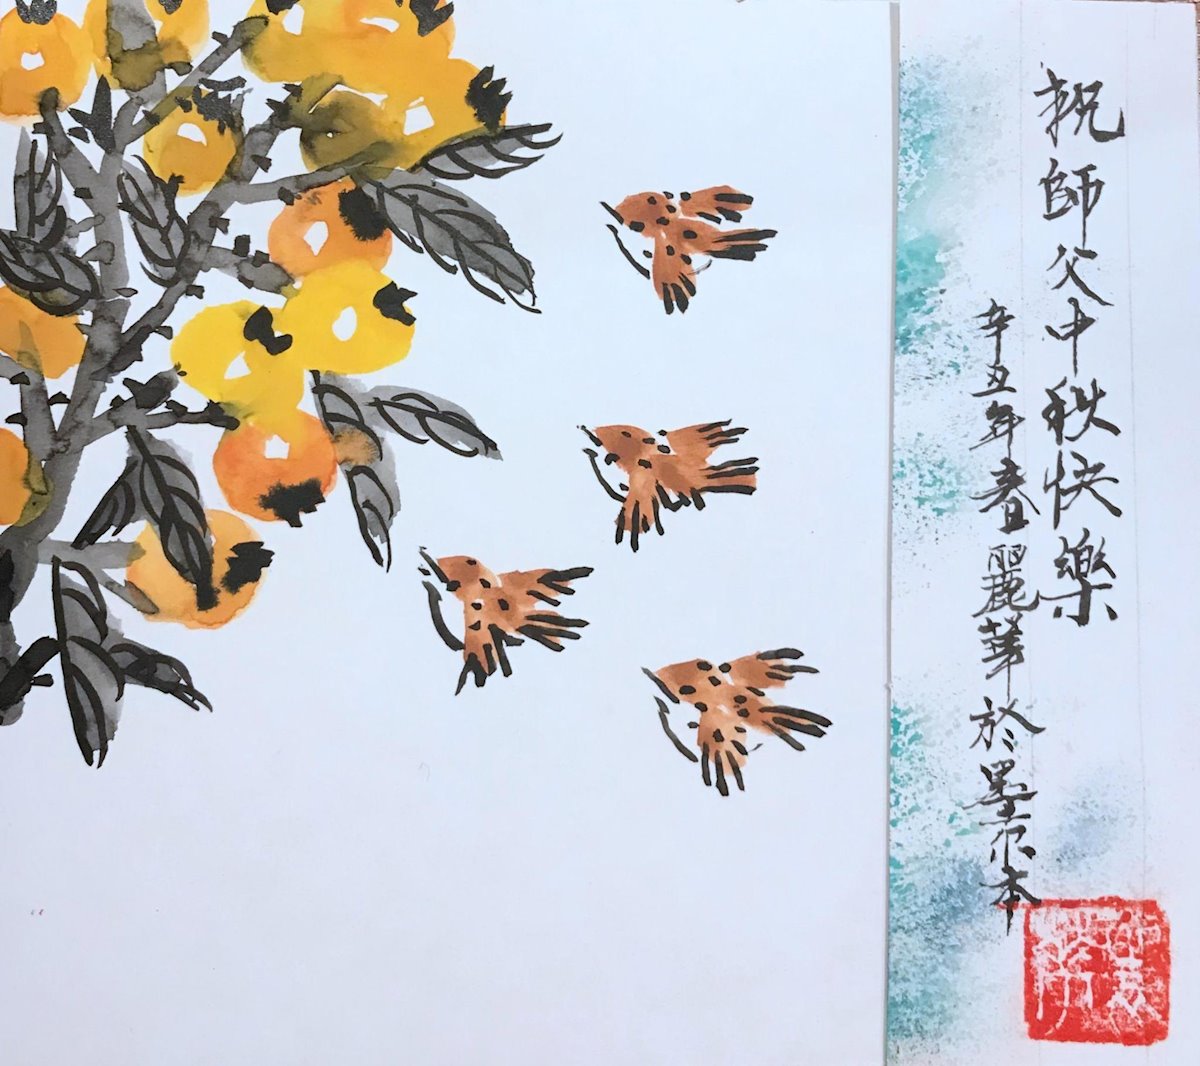 祝師父中秋快樂
辛丑年春麗華於墨尔本